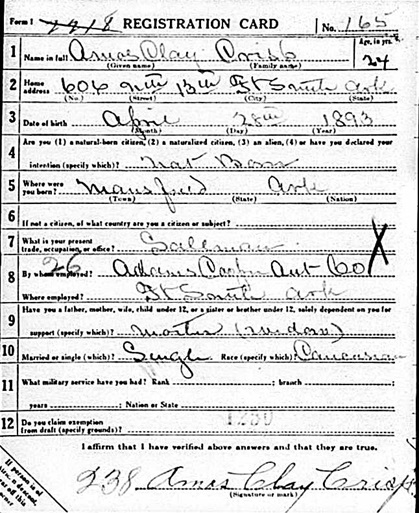 Form 1 1918 REGISTRATION CARD No. 165
1 Name in full Amos Clay Crisp Age, in yrs. 24
(Given name) (Family name)
2 Home address 606 Nth 13th Ft Smith Ark
(No.) (Street) (City) (State)
3 Date of birth April 28th 1893
(Month) (Day) (Year)
4 Are you (1) a natural-born citizen, (2) a naturalized citizen, (3) an alien, (4) or have you declared your
intention (specify which)? Nat Born
5 Where were you born? Mansfield Ark
(Town) (State) (Nation)
6 If not a citizen, of what country are you a citizen or subject?
7 What is your present trade, occupation, or office? Salesman X
26
8 By whom employed? Adams Auto Co
Where employed? Ft Smith Ark
9 Have you a father, mother, wife, child under 12, or a sister or brother under 12, solely dependent on you for
support (specify which)? Mother (widow)
10 Married or single (which)? Single Race (specify which)? Caucasian
11 What military service have you had? Rank ; branch ;
years ; Nation or State
12 Do you claim exemption from draft (specify grounds)? 1250
I affirm that I have verified above answers and that they are true.
238 Amos Clay Crisp
(Signature or mark)
If person is of